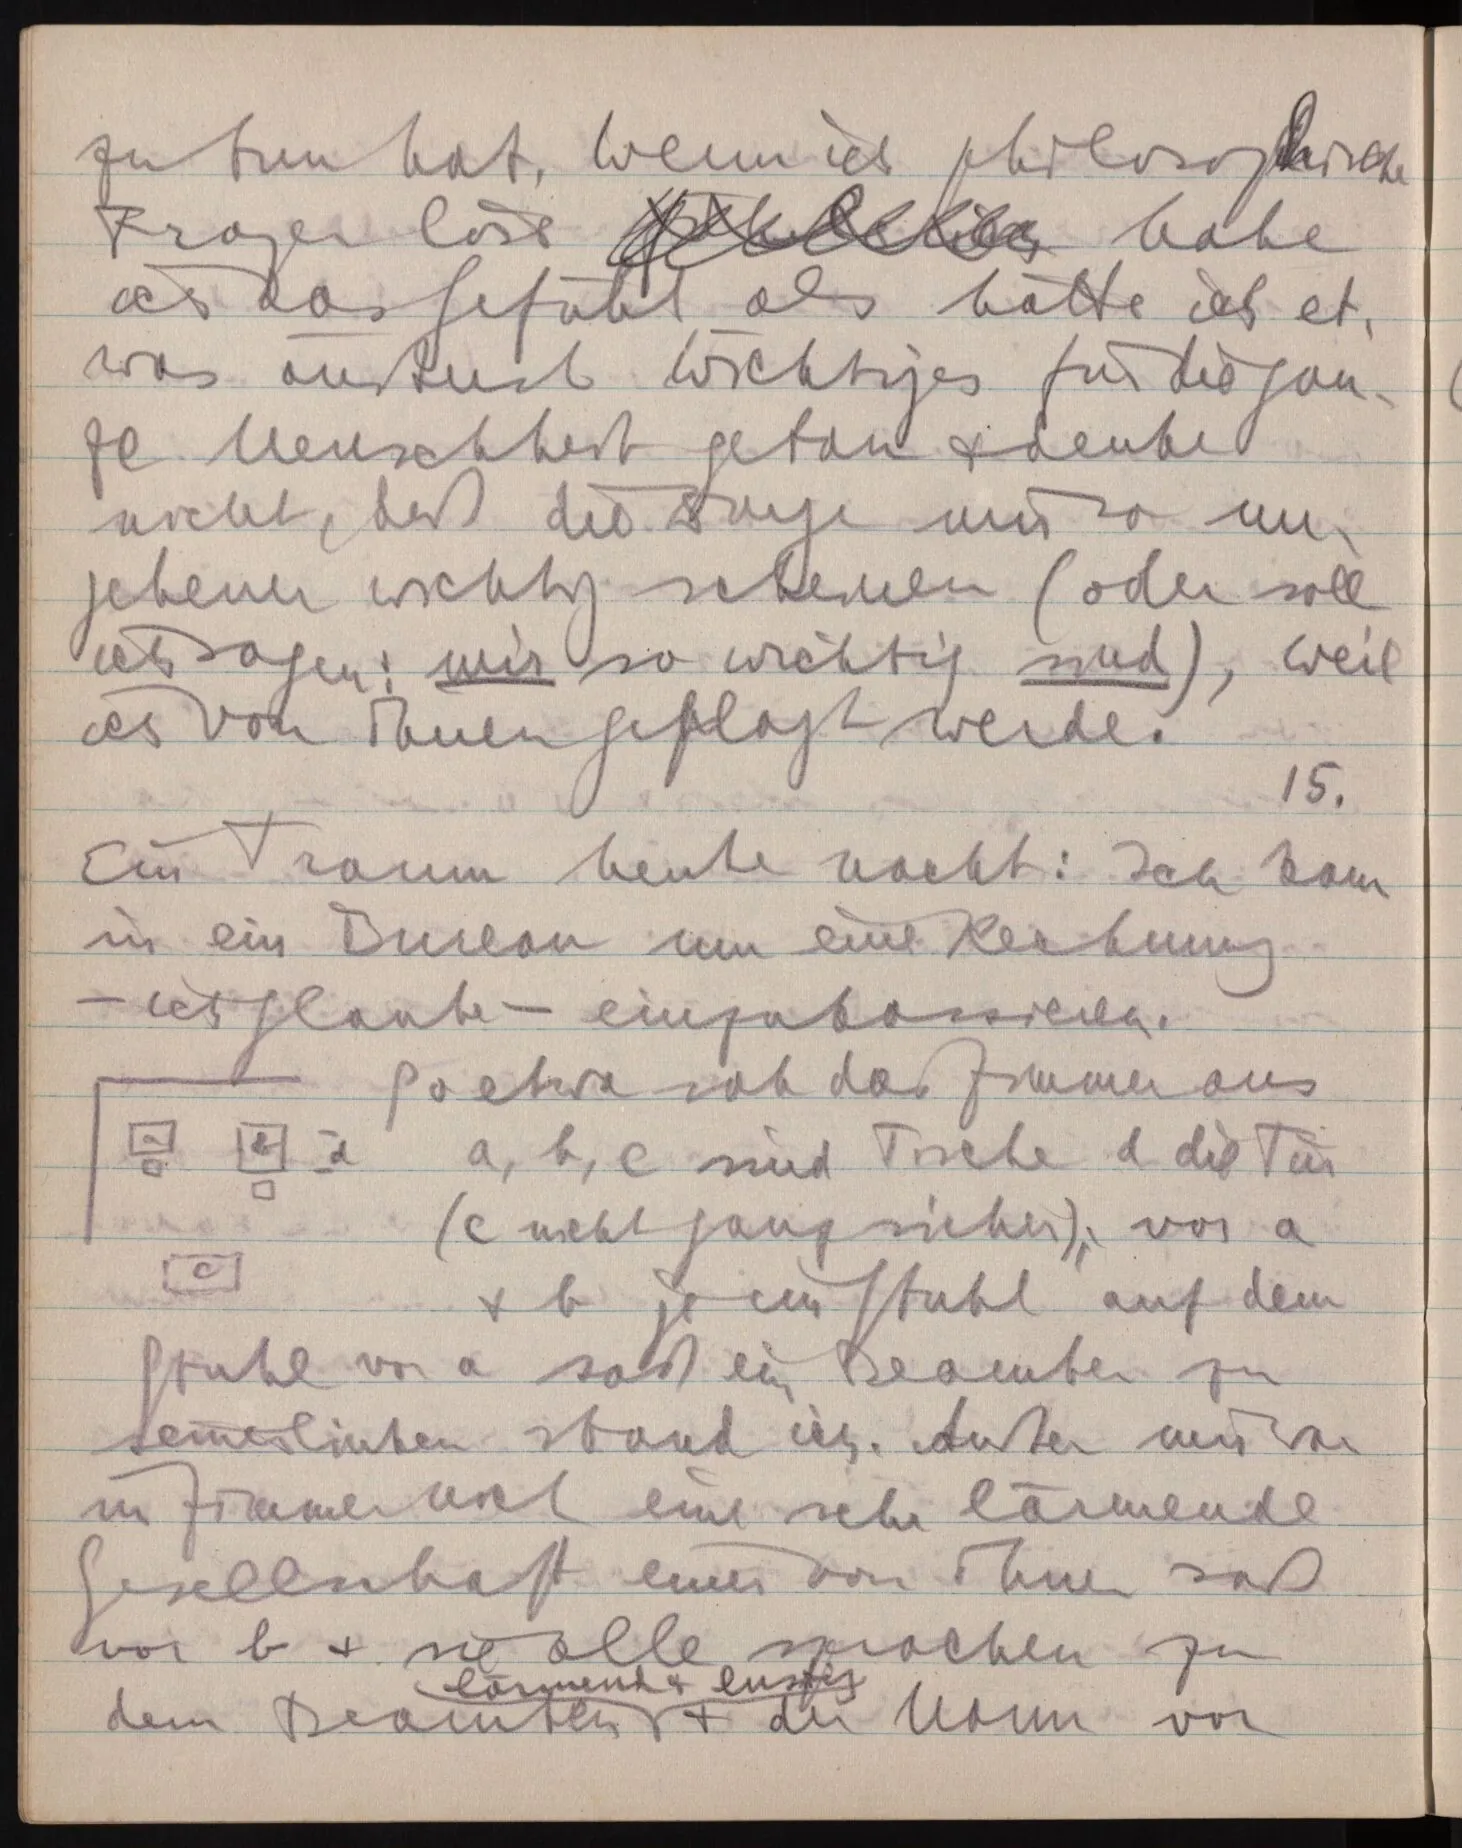 zu tun hat. Wenn ich philosophische
Fragen löse habe
ich das Gefühl als hätte ich et-
was äußerst Wichtiges für die gan-
ze Menschheit getan & denke
nicht, daß die Dinge mir so un-
geheuer wichtig scheinen (oder soll
ich sagen: mir so wichtig sind), weil
ich von ihnen geplagt werde.
15.
Ein Traum heute nacht: Ich kam
in ein Bureau um eine Rechnung
– ich glaube – einzukassieren.
So etwa sah das Zimmer aus
a b d a, b, c sind Tische d die Tür
(c nicht ganz sicher); vor a
c
& b je ein Stuhl auf dem
Stuhl vor a saß ein Beamter zu
seiner linken stand ich. Außer mir war
im Zimmer noch eine sehr lärmende
Gesellschaft einer von ihnen saß
vor b & sie alle sprachen zu
lärmend & lustig
dem Beamten & der Mann vor